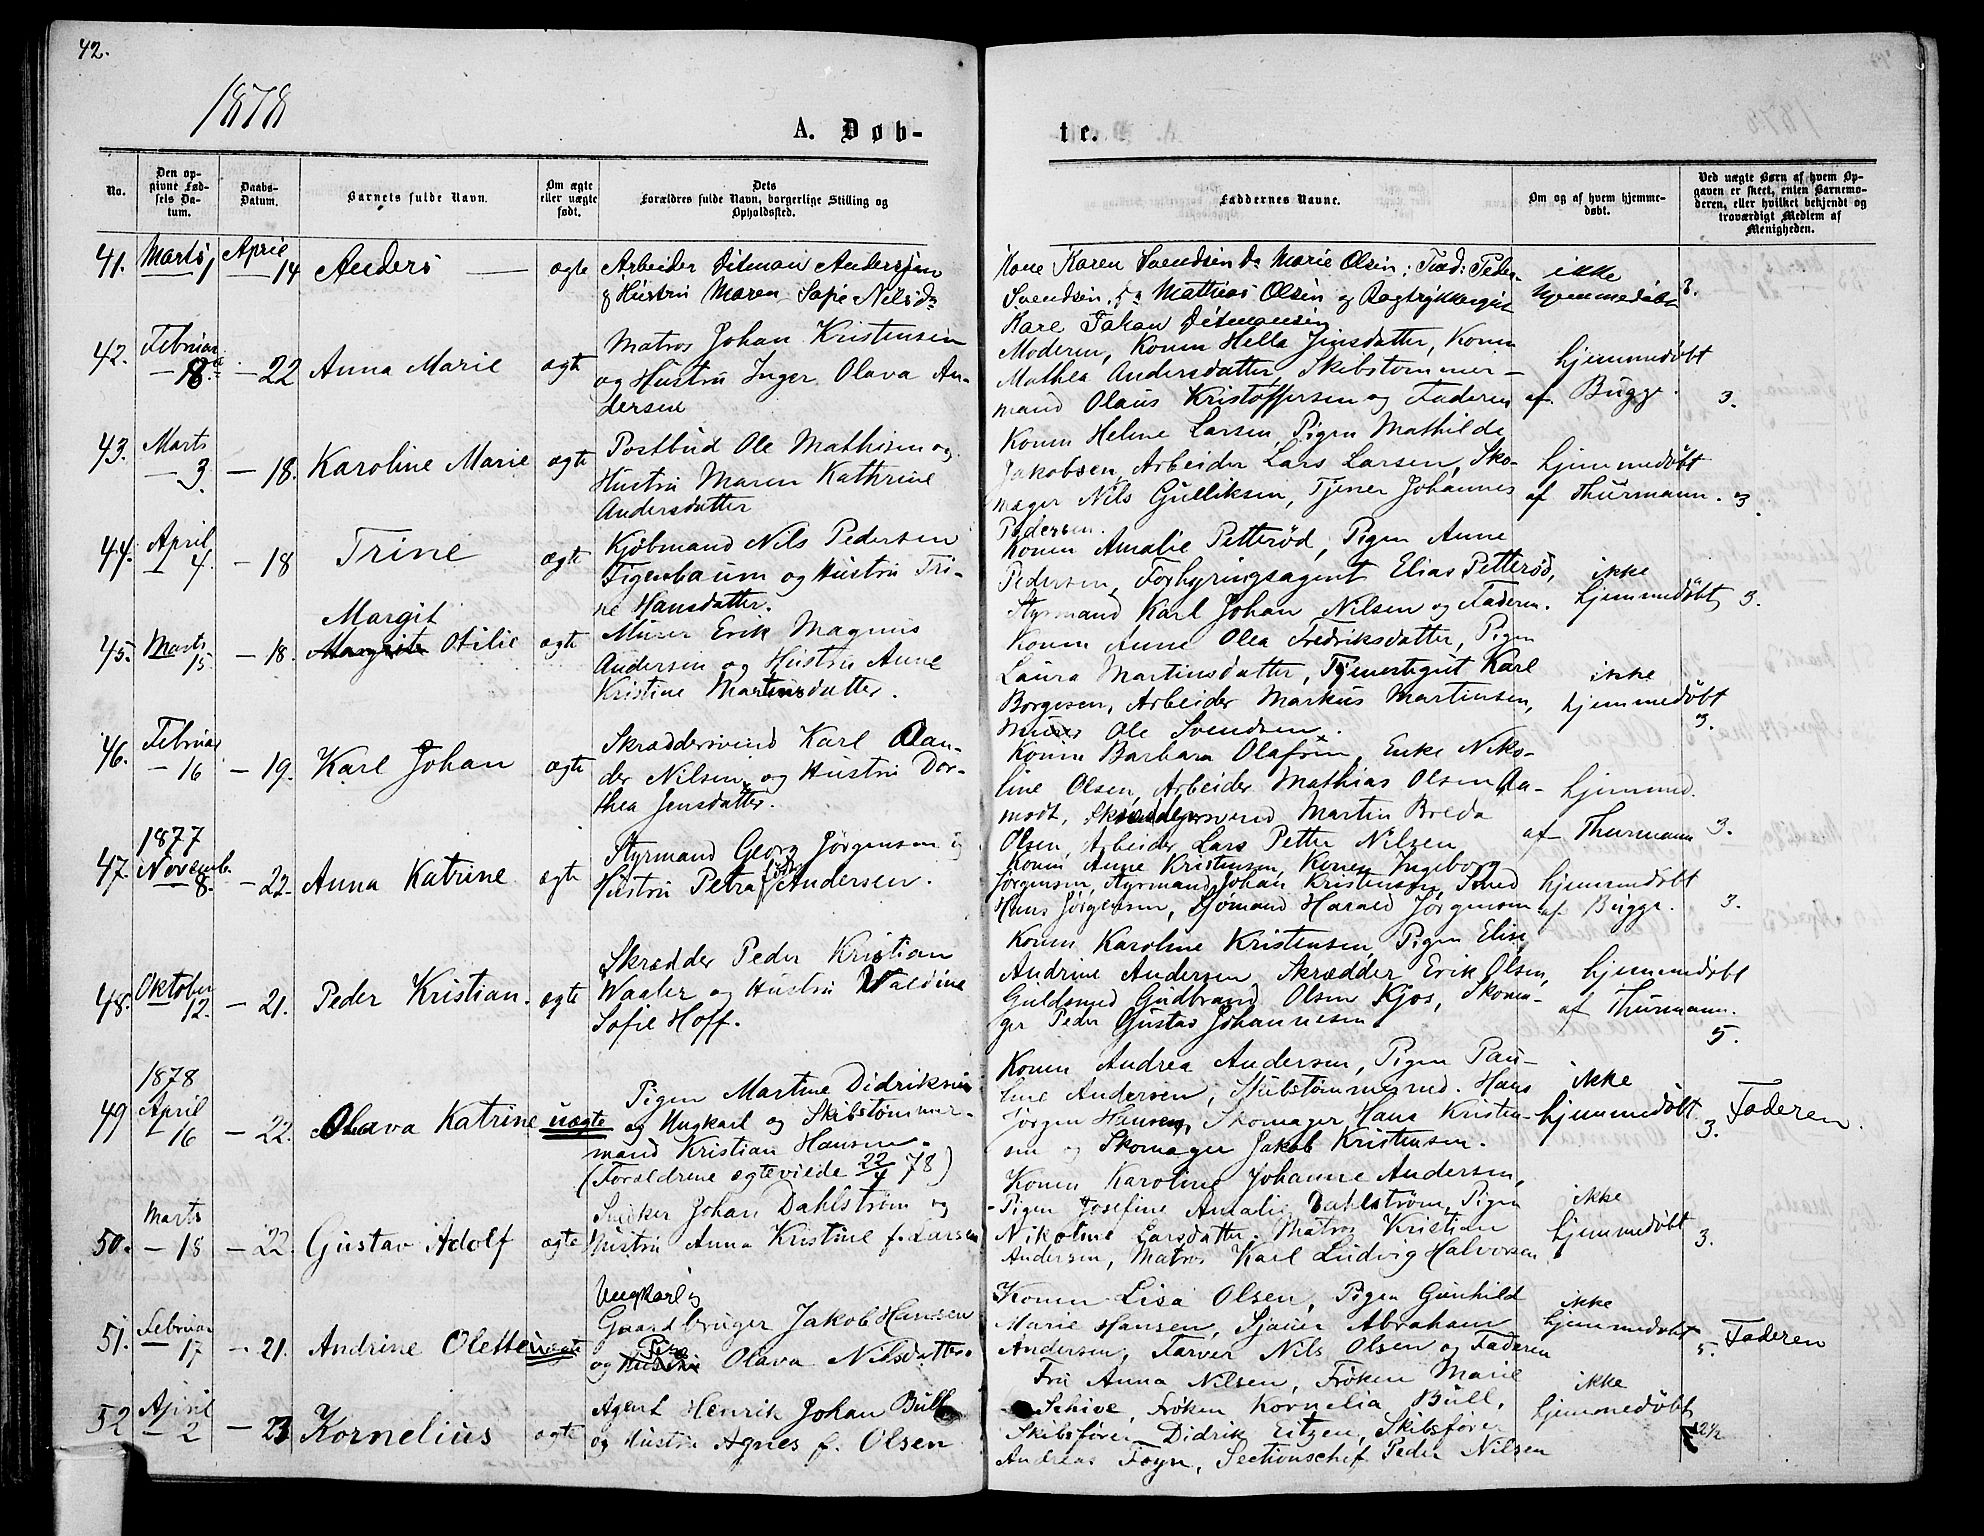 42.
1878
A. Døb-
te.
No.
Den opgivne Fødsels Datum.
Daabs-Datum.
Barnets fulde Navn.
Om ægte eller uægte født.
Dets Forældres fulde Navn, borgerlige Stilling og Opholdssted.
Faddernes Navne.
Om og af hvem hjemmedøbt.
Ved uægte Børn af hvem Opgaven er skeet, enten Barnemoderen, eller hvilket bekjendt og troværdigt Medlem af Menigheden.
41. Marts 1 April 14 Anders ægte
Arbeider Ditman Anderssen
& Hustru Maren Sofie Nilsd.
Kone Karen Svendsen Do Marie Olsen; Fad: Peder
Svendsen, Do Mathias Olsen og Bogtrykkergut
Kare Johan Ditmansen
ikke
hjemmedøbt 3.
42. Februar 18 — 22 Anna Marie ægte
Matros Johan Kristensen
og Hustru Inger Olava An-
dersen
Moderen, Konen Hella Jensdatter, Konen
Mathea Andersdatter, Skibstømmer-
mand Olaus Kristoffersen og Faderen
hjemmedøbt
af Bugge. 3.
43. Marts 3. — 18. Karoline Marie ægte
Postbud Ole Mathisen og
Hustru Maren Kathrine
Andersdatter
Konen Helene Larsen, Pigen Mathilde
Jakobsen, Arbeider Lars Larsen, Sko-
mager Nils Gulliksen, Tjener Johannes
Pedersen.
hjemmedøbt
af Thurmann. 3.
44. April 4. — 18 Trine ægte
Kjøbmand Nils Pedersen
Figenbaum og Hustru Tri-
ne Hansdatter.
Konen Amalie Petterød, Pigen Anne
Pedersen, Forhyringsagent Elias Petterød,
Styrmand Karl Johan Nilsen og Faderen.
ikke
hjemmedøbt 3.
Margit
45. Marts 15 — 18. Margrete Otilie ægte
Murer Erik Magnus
Andersen og Hustru Anne
Kristine Martinsdatter.
Konen Anne Olea Fredriksdatter, Pigen
Laura Martinsdatter, Tjenestegut Karl
Borgesen, Arbeider Markus Martinsen,
Murer Ole Svendsen.
ikke
hjemmedøbt
3.
46. Februar 16 — 19. Karl Johan ægte
Skræddersvend Karl Olan-
der Nilsen og Hustru Dor-
thea Jensdatter.
Konen Barbara Olafsen, Enke Niko-
line Olsen, Arbeider Mathias Olsen Aa-
modt, Skræddersvend Martin Breda
Olsen, Arbeider Lars Petter Nilsen
hjemmed.
af Thurmann 3.
1877
47. Novemb. 8. — 22. Anna Katrine ægte
Styrmand Georg Jørgensen og
Hustru Petra født Andersen.
Konen Anne Kristensen, Konen Ingeborg
Jørgensen, Styrmand Johan Kristensen, Smed
Hans Jørgensen, Sjømand Harald Jørgensen
hjemmedøbt
af Bugge. 3.
48. Oktober 12. — 21. Peder Kristian. ægte
Skrædder Peder Kristian
Waaler og Hustru Valdine
Sofie Hoff.
Konen Karoline Kristensen, Pigen Elise
Andrine Andersen Skrædder Erik Olsen,
Guldsmed Gudbrand Olsen Kjos, Skoma-
ger Peder Gustav Johannesen
hjemmedøbt
af Thurmann.
5.
1878
49. April 16 — 22. Olava Katrine uægte
Pigen Martine Didriksen
og Ungkarl og Skibstømmer-
mand Kristian Hansen.
(Forældrene ægteviede 22/4 78)
Konen Andrea Andersen, Pigen Pau-
line Andersen, Skibstømmermd. Hans
Jørgen Hansen, Skomager Hans Kristen-
sen og Skomager Jakob Kristensen.
ikke
hjemmedøbt 3. Faderen.
50. Marts 18 — 22. Gustav Adolf ægte
Snedker Johan Dahlstrøm og
Hustru Anna Kristine f. Larsen
Konen Karoline Johanne Andersen,
Pigen Josefine Amalie Dahlstrøm, Pigen
Nikoline Larsdatter, Matros Kristian
Andersen, Matros Karl Ludvig Halvorsen
ikke
hjemmedøbt 3.
51. Februar 17 — 21. Andrine Olette uægte
Ungkarl og
Gaardbruger Jakob Hansen
og Hustru Pige Olava Nilsdatter.
Konen Lisa Olsen, Pigen Gunhild
Marie Hansen, Sjauer Abraham
Andersen, Farver Nils Olsen og Faderen
ikke
hjemmedøbt 5. Faderen
52 April 2 — 23 Kornelius ægte
Agent Henrik Johan Bull
og Hustru Agnes f. Olsen
Fru Anna Nilsen, Frøken Marie
Schive, Frøken Kornelia Bull,
Skibsfører Didrik Eitzen, Skibsfører
Andreas Foyn, Sectionschef Peder Nilsen
ikke
hjemmedøbt